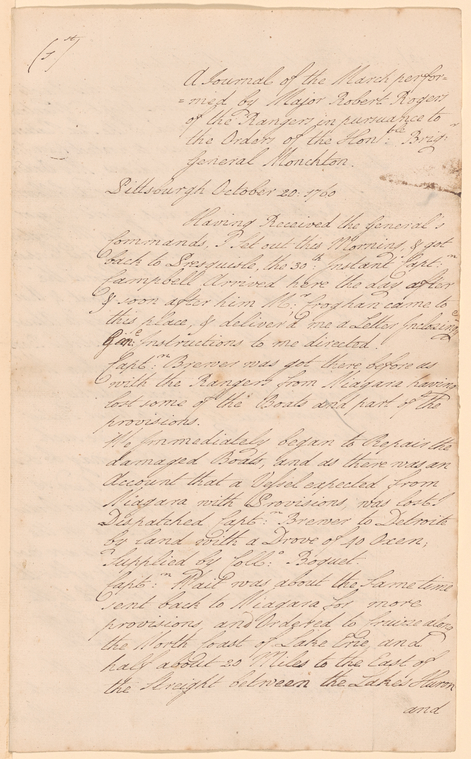 (1st)
A Journal of the March perfor=
=med by Major Robert Rogers
of the Rangers in pursuance to
the Orders of the Honble: Brigr
General Monckton.
Pittsburgh October 20. 1760
Having Received the General's
Commands, I Set out this Morning, & got
back to Presquisle, the 30th: Instant Captn:
Campbell Arrived here the day after
& soon after him Mr: Croghan came to
this place, & deliver'd me a Letter Inclosing
Instructions to me directed.
Captn: Brewer was got there before us
with the Rangers from Niagara having
lost some of the Boats and part of the
provisions.
We Immediately began to Repair the
damaged Boats, and as there was an
Account that a Vessel expected from
Niagara with Provisions, was lost I
Dispatched Captn: Brewer to Detroit
by land with a Drove of 40 Oxen,
Supplied by Coll: Boquet.
Captn: Wait was about the Same time
sent back to Niagara for more
provisions, and Ordered to Cruize along
the North Coast of Lake Erie and
halt about 20 Miles to the East of
the Streight between the Lakes Huron
and